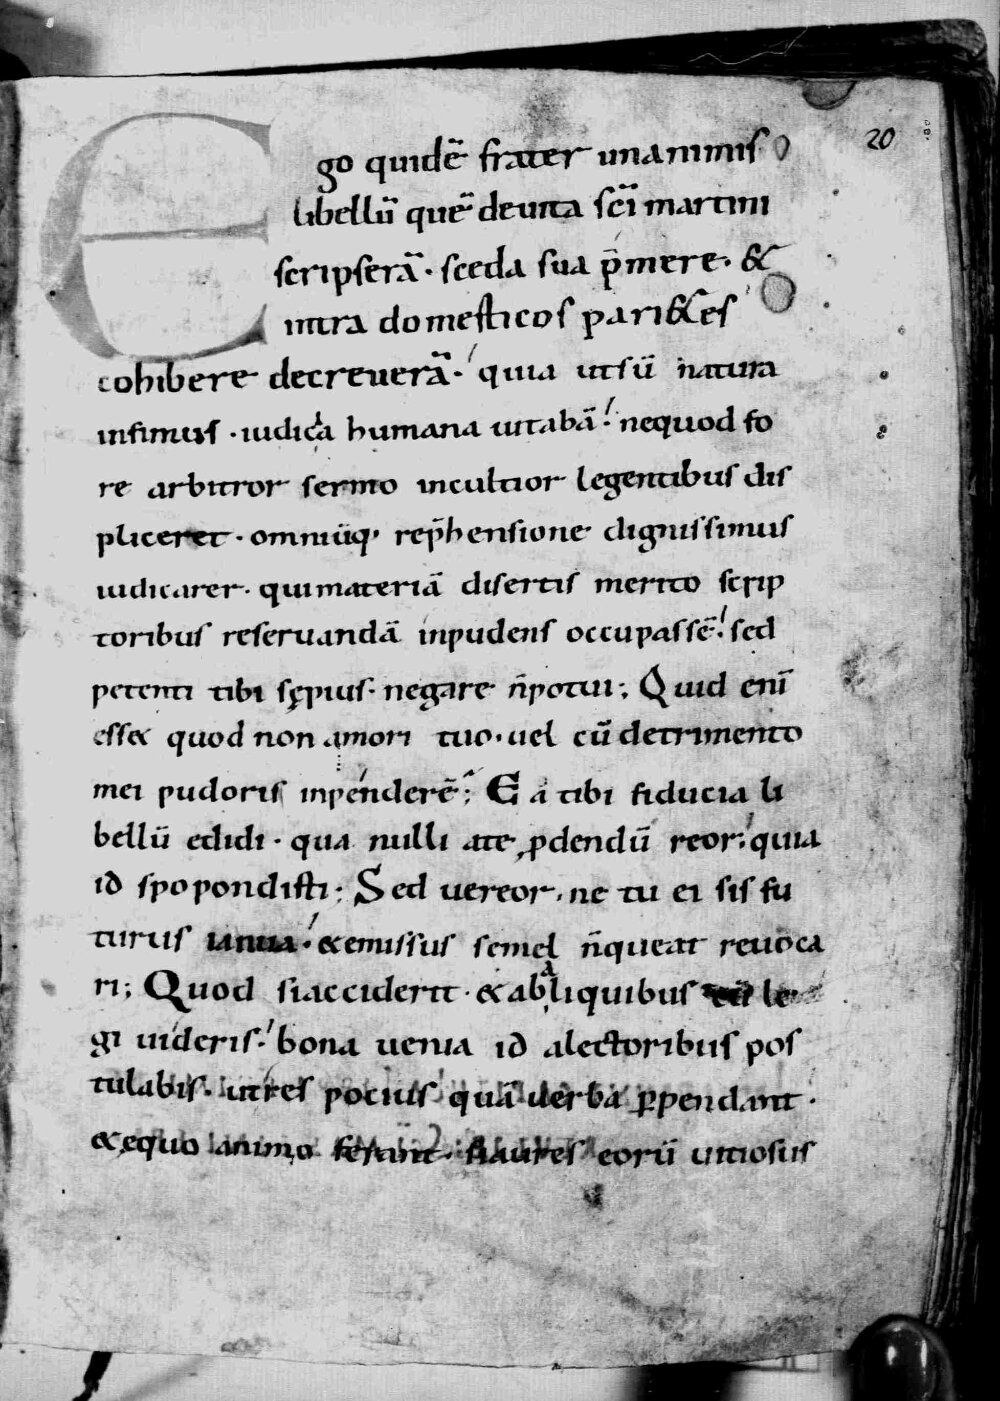 20
Ego quidē frater unanimis
libellū quē deuita sc̄i martini
scripserā · sceda sua p̄mere · &
intra domesticos pari&es
cohibere decreuerā · quia utsū natura
infimus · iudicia humana uitabā · nequod fo
re arbitror sermo incultior legentibus dis
pliceret · omniūq; rep̄hensione dignissimus
iudicarer · quimateriā disertis merito scrip
toribus reseruandā inpudens occupassē · sed
petenti tibi sępius · negare n̄potui; Quid enī
ess& quod non amori tuo · uel cū detrimento
mei pudoris inpenderē; Ea tibi fiducia li
bellū edidi · qua nulli ate ꝓdendū reor · quia
id spopondisti; Sed uereor · ne tu ei sis fu
turus ianua · &emissus semel n̄queat reuoca
ri; Quod siacciderit · &abaliquibus eū le
gi uideris · bona uenia id alectoribus pos
tulabis · utres potius quā uerba ꝑpendant ·
&equo animo ferant · siaures eorū uitiosus